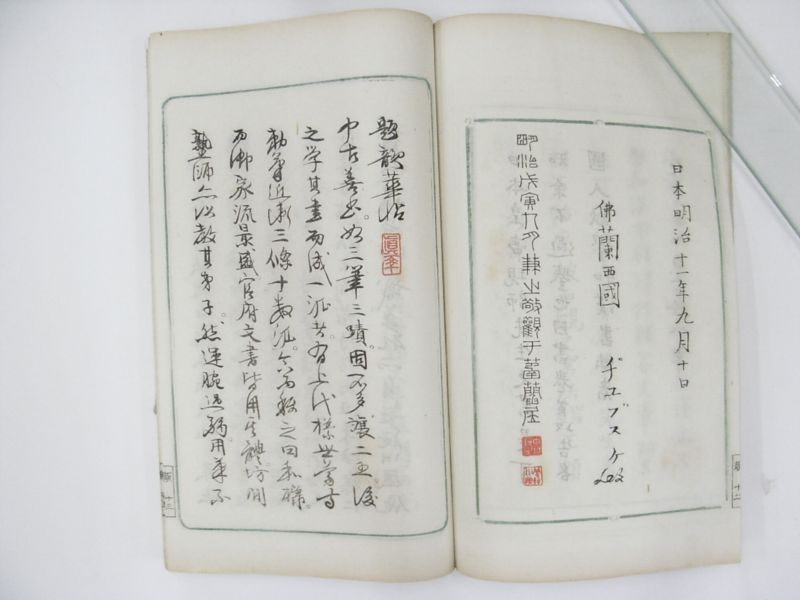 日本明治十一年九月十日
佛蘭西國
ヂユブスケ
明治戊寅九月兼之敬觀于
題韻華帖
中古善書如三筆三蹟固不多讓二王後
之学其書而成一派者有上代様世尊寺
勅筆近衛三條十數派今爲之曰和様
而御家流最盛官府文書皆用其體坊間
塾師亦以教其弟子然運腕過弱用筆不